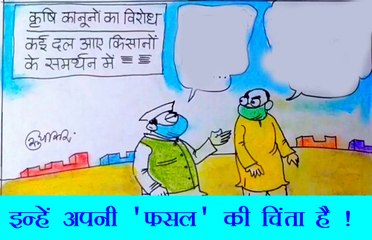 कृषि कानूनों का विरोध
कई दल आए किसानों
के समर्थन में
इन्हें अपनी 'फसल' की चिंता है !